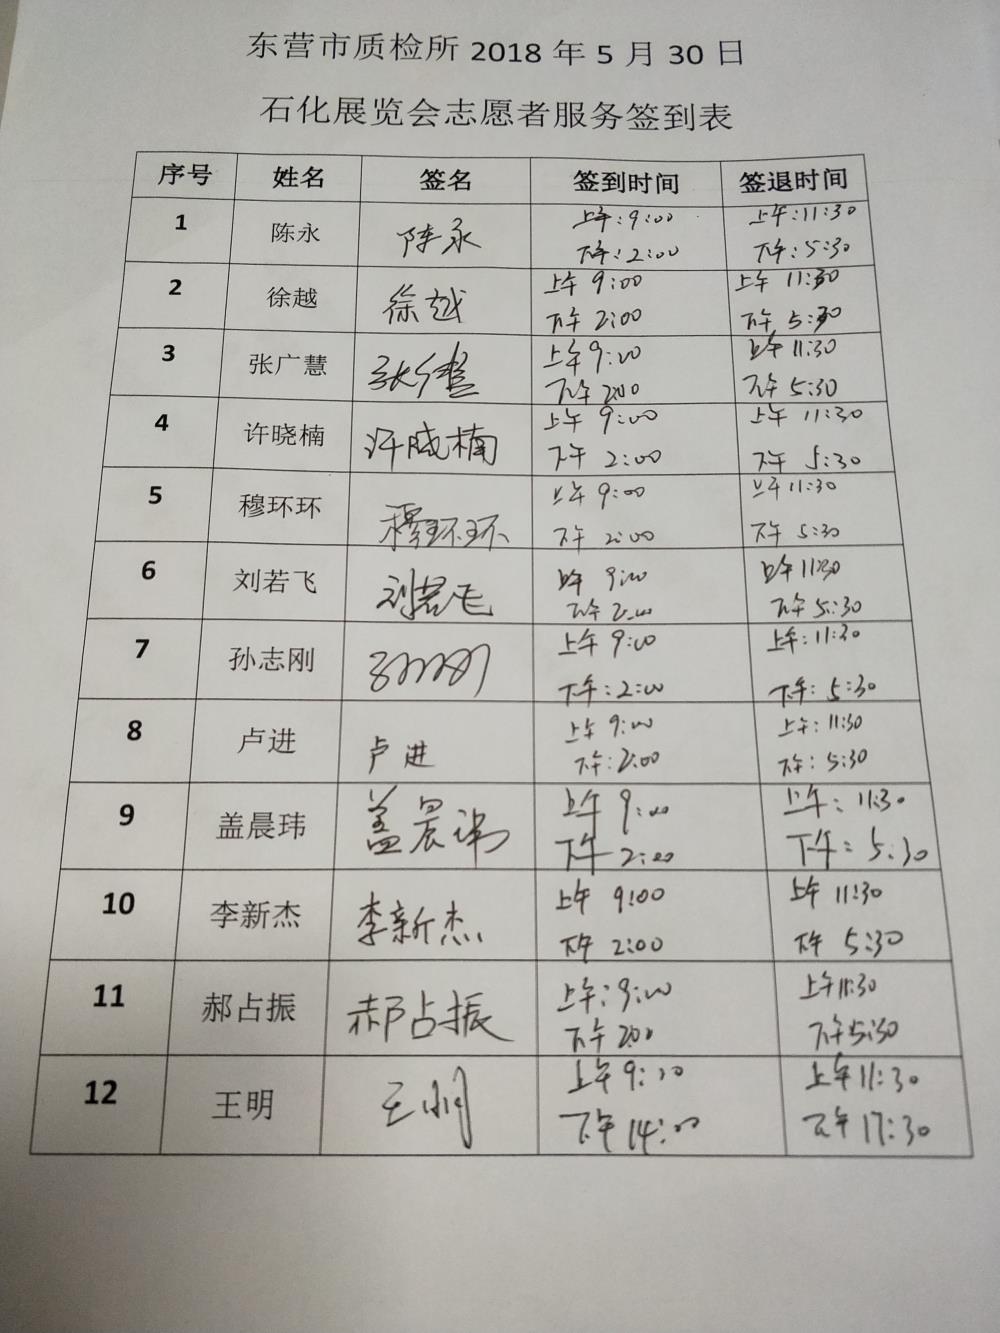 东营市质检所 2018 年 5 月 30 日
石化展览会志愿者服务签到表
序号 姓名 签名 签到时间 签退时间
1 陈永 陈永 上午:9:00 上午:11:30
下午:2:00 下午:5:30
2 徐越 徐越 上午 9:00 上午 11:30
下午 2:00 下午 5:30
3 张广慧 张广慧 上午9:00 上午11:30
下午 2:00 下午 5:30
4 许晓楠 许晓楠 上午 9:00 上午 11:30
下午 2:00 下午 5:30
5 穆环环 穆环环 上午 9:00 上午11:30
下午 2:00 下午 5:30
6 刘若飞 刘若飞 上午 9:00 上午11:30
下午 2:00 下午5:30
7 孙志刚 上午 9:00 上午:11:30
下午:2:00 下午:5:30
8 卢进 卢进 上午 9:00 上午:11:30
下午:2:00 下午:5:30
9 盖晨玮 盖晨玮 上午 9:00 上午:11:30
下午 2:00 下午:5:30
10 李新杰 李新杰 上午 9:00 上午 11:30
下午 2:00 下午 5:30
11 郝占振 郝占振 上午:9:00 上午11:30
下午 2:00 下午5:30
12 王明 王明 上午9:00 上午11:30
下午14:00 下午17:30